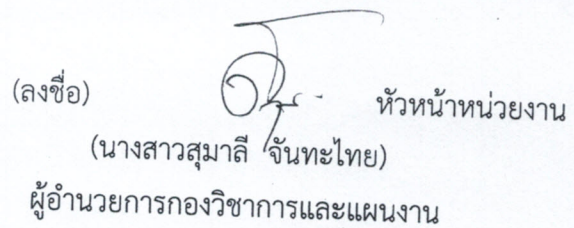 (ลงชื่อ) หัวหน้าหน่วยงาน
(นางสาวสุมาลี จันทะไทย)
ผู้อำนวยการกองวิชาการและแผนงาน